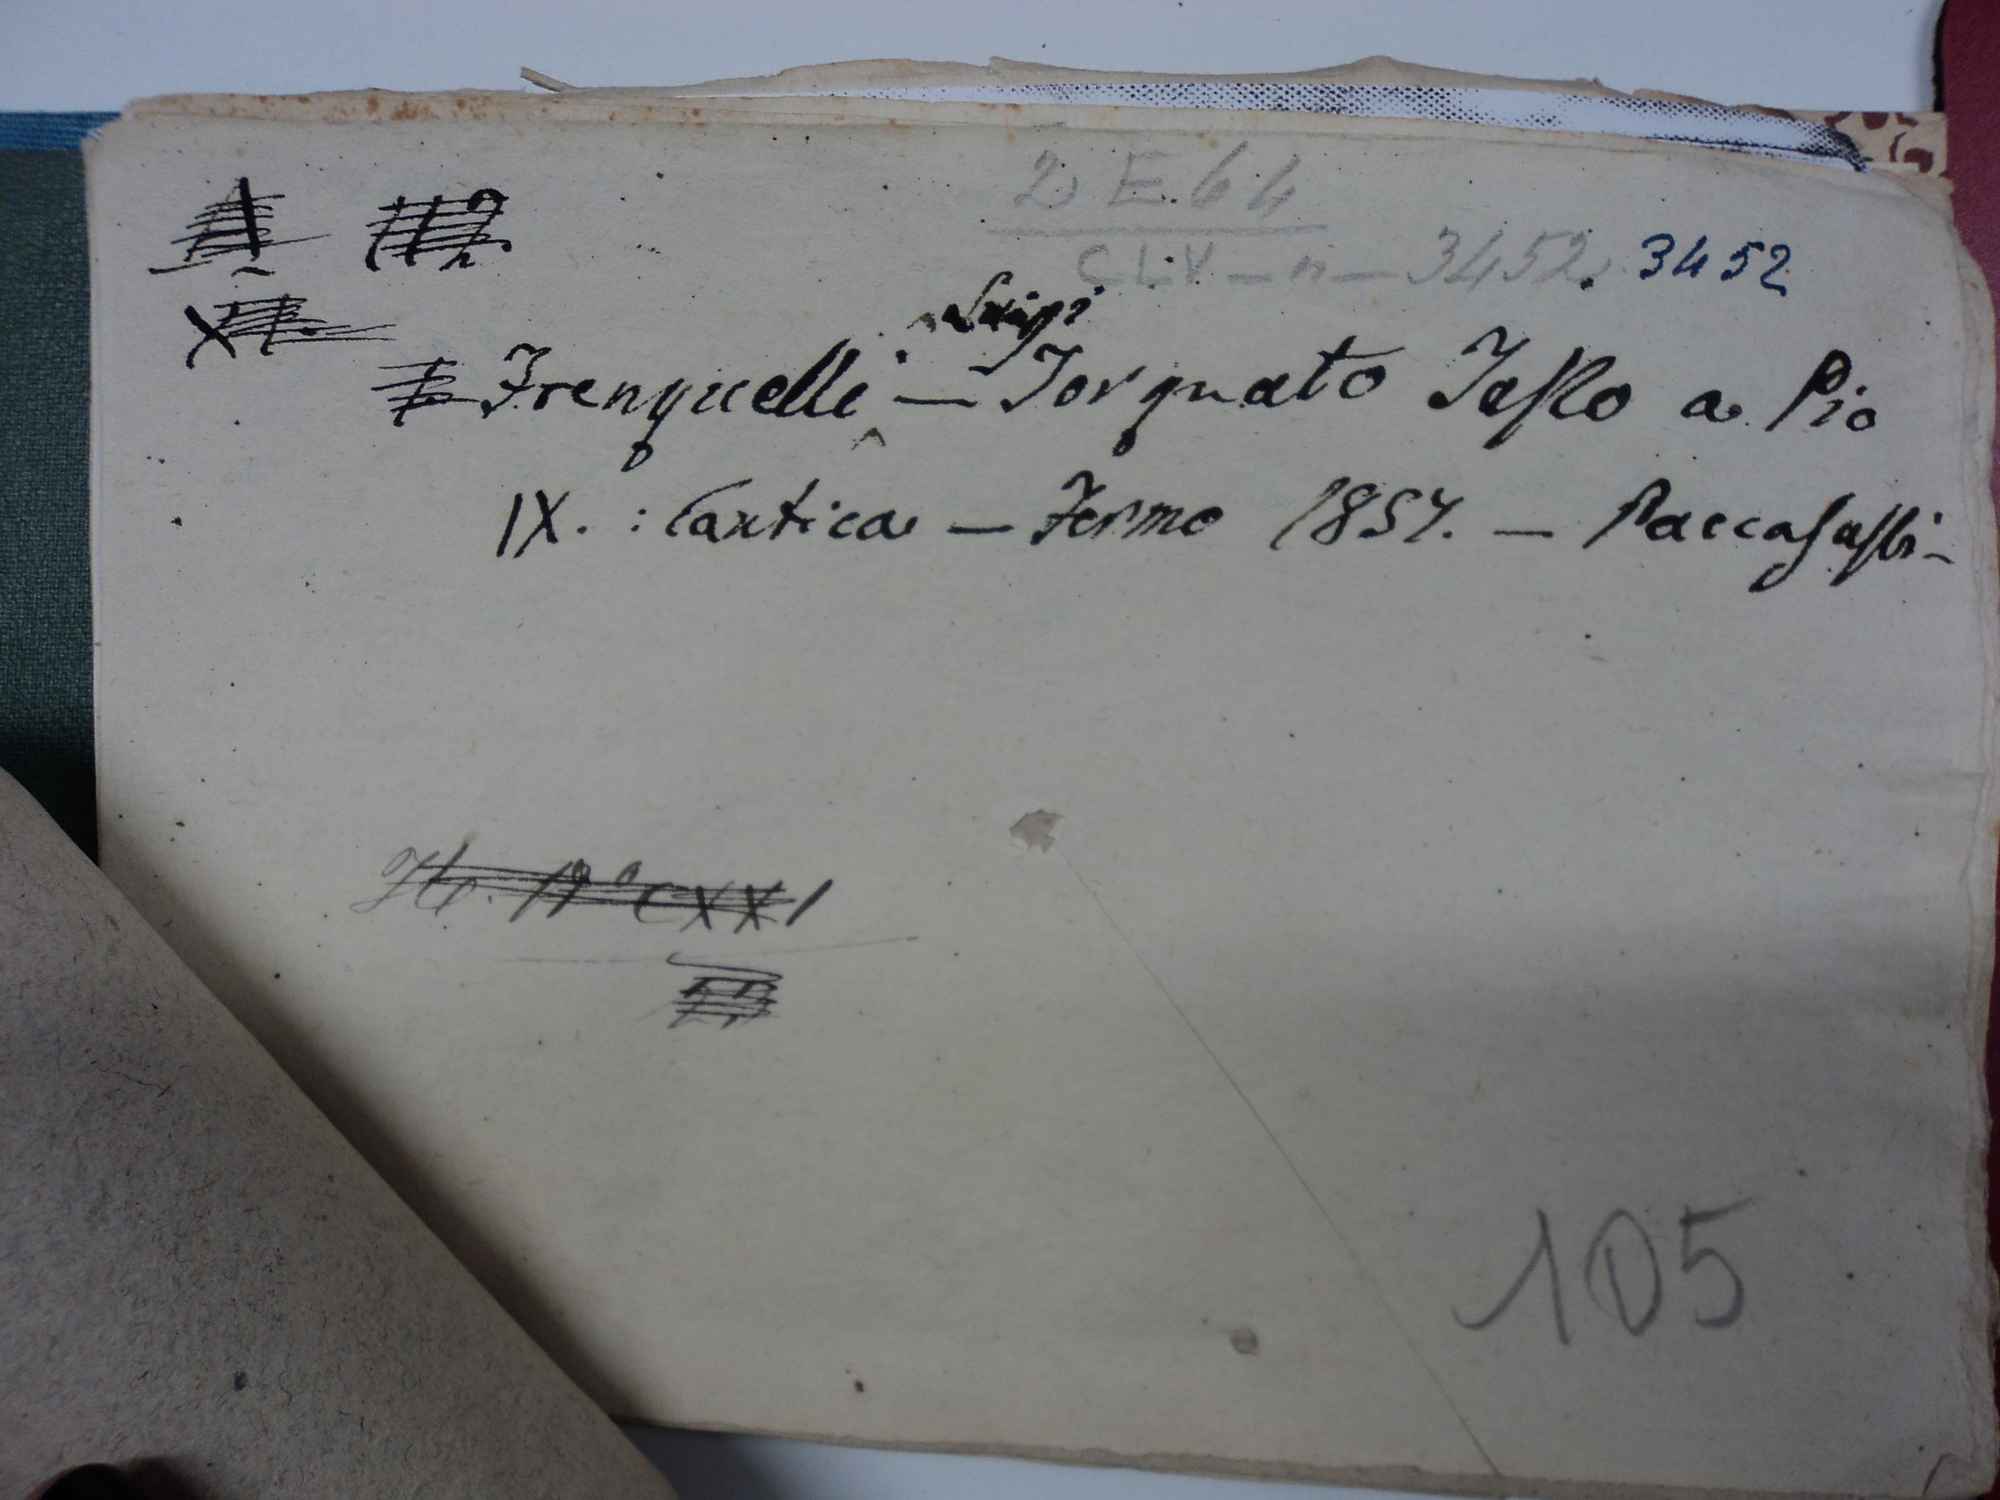 2 E. 64
CLV - n - 3452. 3452
Luigi
Frenguelli — Torquato Tasso a Pio
IX. : Cantica — Fermo 1857. — Paccasassi -
H. N° CXXI
105